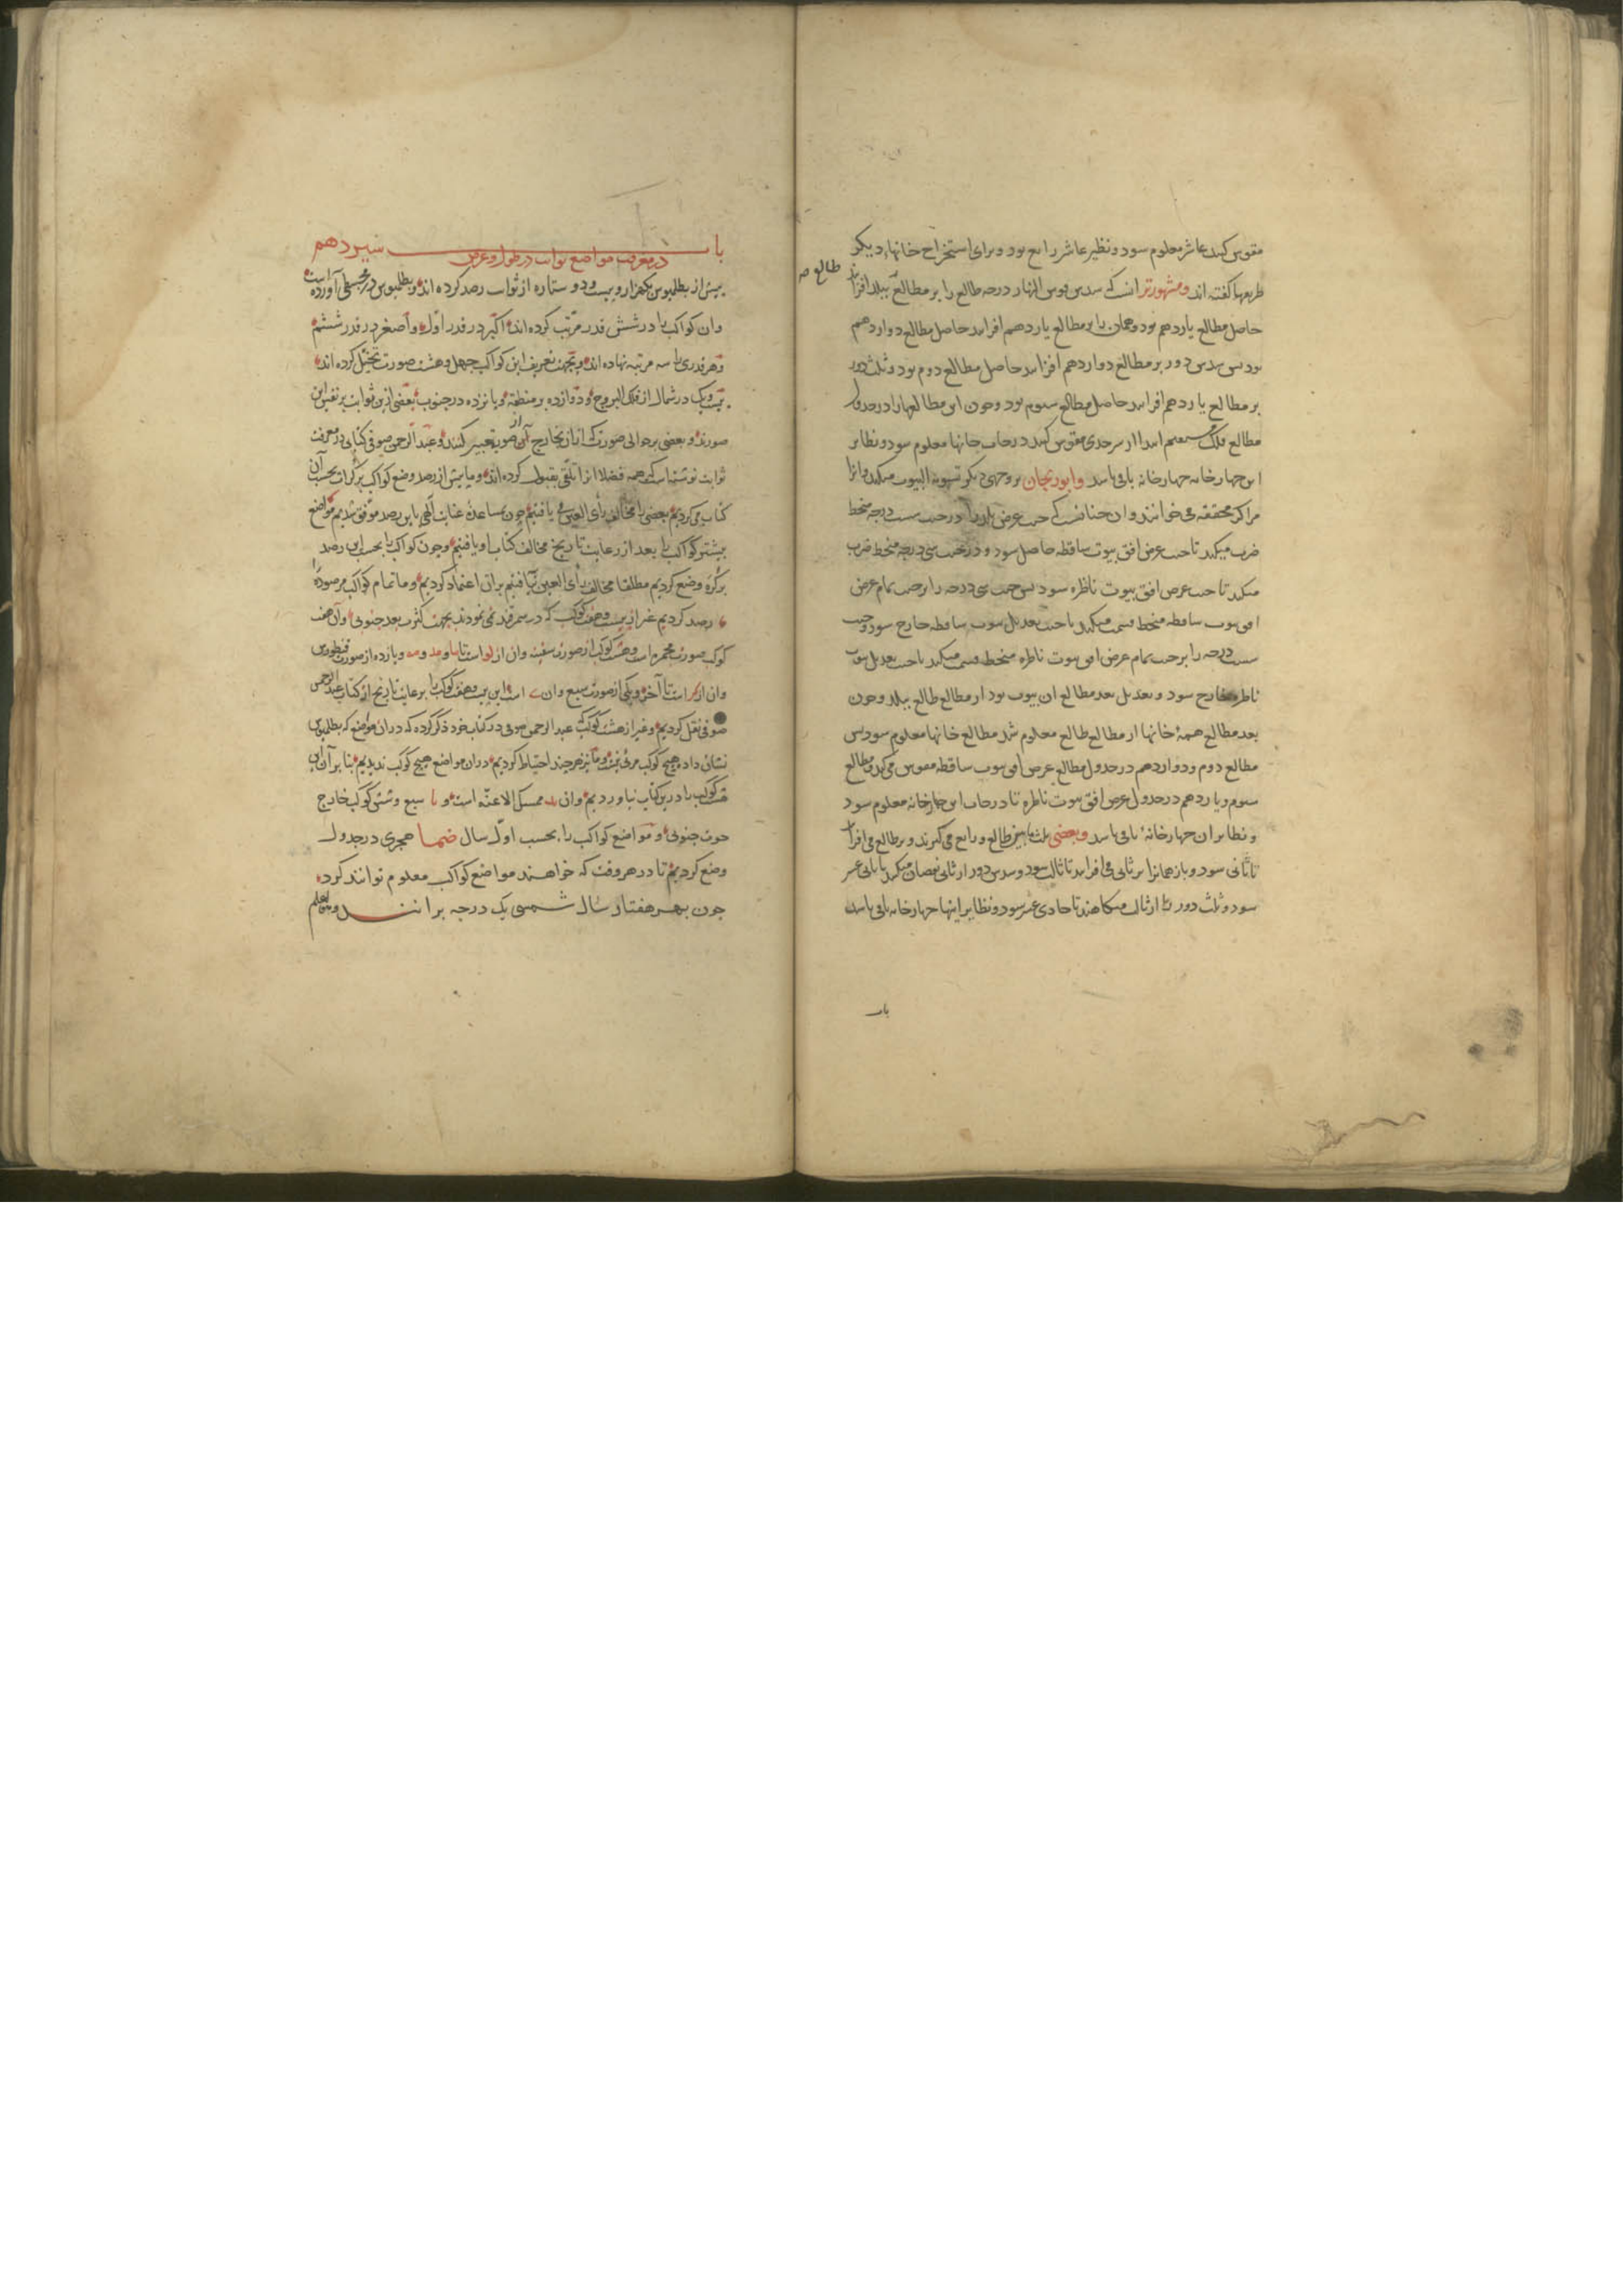 مقوس کنند عاشر معلوم شود و نظیر عاشر رابع بود و برای استخراج خانهاء دیکر
طریقها کفته اند ومشهورتر انست که سدس قوس النهار درجه طالع را بر مطالع ببلد افزایند
طالع صح
حاصل مطالع یازدهم بود و همان را بر مطالع یازدهم افزایند حاصل مطالع دوازدهم
بود بس سدس دور بر مطالع دوازدهم افزایند حاصل مطالع دوم بود و ثلث دور
بر مطالع یازدهم افزایند حاصل مطالع سوم بود و چون این مطالعها را در جدول
مطالع فلک مستقیم ابتدا از سر جدی مقوس کنند درجات خانها معلوم شود و نظایر
این چهار خانه چهار خانه باقی باشد وابوریحان بر وجهی دیکر تسویة البیوت میکند و انرا
مراکز محققه می خوانند و ان چنانست که جیب عرض بلد را در جیب شصت درجه منحط
ضرب میکند تا جیب عرض افق بیوت ساقطه حاصل شود و در جیب سی درجه منحط ضرب
میکند تا جیب عرض افق بیوت ناظره شود بس جیب سی درجه را بر جیب تمام عرض
افق بیوت ساقطه منحط قسمت میکند تا جیب تعدیل بیوت ساقطه خارج شود و جیب
شصت درجه را بر جیب تمام عرض افق بیوت ناظره منحط قسمت میکند تا جیب تعدیل بیوت
ناظره خارج شود و تعدیل بعد مطالع ان بیوت بود از مطالع طالع ببلد و چون
بعد مطالع همهٔ خانها از مطالع طالع معلوم شد مطالع خانها معلوم شود بس
مطالع دوم و دوازدهم در جدول مطالع عرض افق بیوت ساقطه مقوس می کند و مطالع
سوم و یازدهم در جدول عرض افق بیوت ناظره تا درجات این چهار خانه معلوم شود
و نظایر ان چهار خانهٔ باقی باشد وبعضی ثلث مابین طالع و رابع می کیرند و بر طالع می افزایند
تا ثانی شود و باز همانرا بر ثانی می افزایند تا ثالث شود و سدس دور از ثانی نقصان میکنند تا ثانی عشر
شود و ثلث دور را از ثالث میکاهند تا حادی عشر شود و نظایر اینها چهار خانه باقی باشد
باب
باب سیزدهم
در معرفت مواضع ثوابت در طول و عرض
بیش از بطلمیوس یکهزار و بیست و دو ستاره از ثوابت رصد کرده اند و بطلمیوس در مجسطی آورده است
وان کواکب را در شش قدر مرتب کرده اند اکبر در قدر اول و اصغر در قدر ششم
و هر قدری را سه مرتبه نهاده اند و بجهت تعریف این کواکب چهل و هشت صورت تخیل کرده اند
بیست ویک در شمال از فلک البروج و دوازده بر منطقه و بانزده در جنوب بعضی ازین ثوابت بر نفس این
صورند و بعضی بر حوالی صورت که ازان بخارج آن صورت تعبیر کنند و عبد الرحمن صوفی کتابی در معرفت
ثوابت نوشته است که همه فضلا انرا تلقی بقبول کرده اند و ما بیش از رصد وضع کواکب بر کرات بحسب آن
کتاب می کردیم بعضی را مخالف رأی العین می یافتیم چون بمساعدهٔ عنایت الهی باین رصد موفق شدیم مواضع
بیشتر کواکب را بعد از رعایت تاریخ مخالف کتاب او یافتیم و چون کواکب را بحسب این رصد
بر کره وضع کردیم مطلقا مخالف رأی العین نیافتیم بران اعتماد کردیم و ما تمام کواکب مرصوده را
رصد کردیم غیر از بیست و هفت کوکب که در سمرقند نمی نمودند بجهت کثرت بعد جنوبی و آن هفت
کوکب صورت مجمره است و هشت کوکب از صورت سفینه وان از لو است تا ما و مد و مه و یازده از صورت قنطورس
وان از کر است تا آخر و یکی از صورت سبع وان ے است این بیست و هفت کوکب را برعایت تاریخ از کتاب عبد الرحمن
صوفی نقل کردیم و غیر از هشت کوکب عبد الرحمن صوفی در کتاب خود ذکر کرده که دران مواضع که بطلمیوس
نشان داده هیچ کوکب مرئی نیست و ما نیز هر چند احتیاط کردیم دران مواضع هیچ کوکب ندیدیم بنا بر آن این
هشت کوکب را درین کتاب نیاوردیم وان ید ممسک الاعنّه است و یا سبع و شش کوکب خارج
حوت جنوبی و مواضع کواکب را بحسب اول سال ضما هجری در جدول
وضع کردیم تا در هر وقت که خواهند مواضع کواکب معلوم توانند کرد
چون بهر هفتاد سال شمسی یک درجه برانند والله اعلم